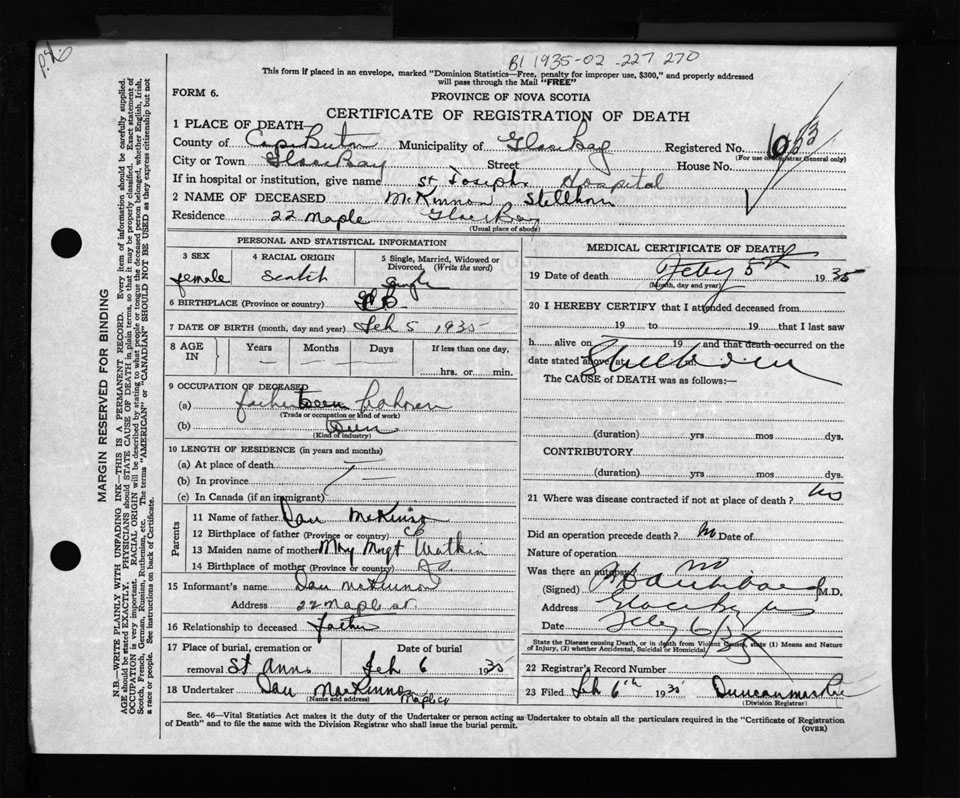 B1 1935-02-227 270
This form if placed in an envelope, marked "Dominion Statistics—Free, penalty for improper use, $300," and properly addressed
will pass through the Mail "FREE"
FORM 6.
PROVINCE OF NOVA SCOTIA
CERTIFICATE OF REGISTRATION OF DEATH
1 PLACE OF DEATH—
County of Cape Breton Municipality of Glace Bay Registered No.
(For use of Registrar General only)
City or Town Glace Bay Street House No.
If in hospital or institution, give name St Josephs Hospital
2 NAME OF DECEASED McKinnon Stillborn
Residence 22 Maple Glace Bay
(Usual place of abode)
PERSONAL AND STATISTICAL INFORMATION
3 SEX 4 RACIAL ORIGIN 5 Single, Married, Widowed or Divorced, (Write the word)
female Scotch Single
6 BIRTHPLACE (Province or country)
7 DATE OF BIRTH (month, day and year) Feb 5 1935
8 AGE IN Years Months Days If less than one day,
hrs. or min.
9 OCCUPATION OF DECEASED
(a) father
(Trade or occupation or kind of work)
(b)
(Kind of industry)
10 LENGTH OF RESIDENCE (in years and months)
(a) At place of death
(b) In province
(c) In Canada (if an immigrant)
Parents
11 Name of father Dan McKinnon
12 Birthplace of father (Province or country) CB
13 Maiden name of mother Mary Mngt Watkin
14 Birthplace of mother (Province or country)
15 Informant's name Dan McKinnon
Address 22 Maple st
16 Relationship to deceased father
17 Place of burial, cremation or removal St Anns Date of burial Feb 6 1935
18 Undertaker Dan MacKinnon
(Name and address) Maple
MEDICAL CERTIFICATE OF DEATH
19 Date of death Feby 5th 1935
(Month, day and year)
20 I HEREBY CERTIFY that I attended deceased from
19 to 19 that I last saw
h alive on 19 and that death occurred on the
date stated above, at Stillborn
The CAUSE of DEATH was as follows:—
(duration) yrs mos dys.
CONTRIBUTORY
(duration) yrs mos dys.
21 Where was disease contracted if not at place of death? no
Did an operation precede death? no Date of
Nature of operation
Was there an autopsy? no
(Signed) M.D.
Address Glace Bay
Date Feby 6/35
State the Disease causing Death, or in death from Violent Causes, state (1) Means and Nature
of Injury, (2) whether Accidental, Suicidal or Homicidal.
22 Registrar's Record Number
23 Filed Feb 6th 1935 Duncan
(Division Registrar)
Sec. 46—Vital Statistics Act makes it the duty of the Undertaker or person acting as Undertaker to obtain all the particulars required in the "Certificate of Registration
of Death" and to file the same with the Division Registrar who shall issue the burial permit.
(OVER)
MARGIN RESERVED FOR BINDING
N.B.—WRITE PLAINLY WITH UNFADING INK—THIS IS A PERMANENT RECORD. Every item of information should be carefully supplied.
AGE should be stated EXACTLY. PHYSICIANS should STATE CAUSE OF DEATH in plain terms, so that it may be properly classified. Exact statement of
OCCUPATION is very important. RACIAL ORIGIN will be described by stating to what people or tongue the deceased person belonged, whether English, Irish,
Scotch, French, German, Russian, Ruthenian, etc. The terms "AMERICAN" or "CANADIAN" SHOULD NOT BE USED as they express citizenship but not
a race or people. See instructions on back of Certificate.